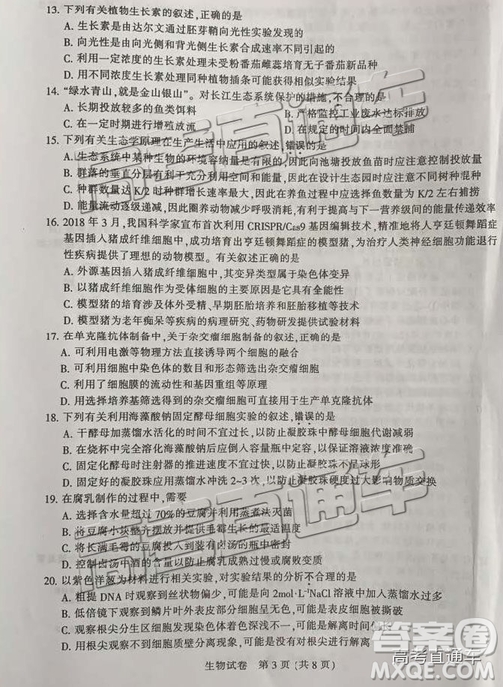 13. 下列有关植物生长素的叙述,正确的是
A. 生长素是由达尔文通过胚芽鞘向光性实验发现的
B. 向光性是由向光侧和背光侧生长素合成速率不同引起的
C. 利用一定浓度的生长素处理未受粉番茄雌蕊培育无子番茄新品种
D. 用不同浓度生长素处理同种植物插条可能获得相似实验结果
14. “绿水青山,就是金山银山”。对长江生态系统保护的措施,不合理的是
A. 长期投放较多的鱼类饵料 B. 严格监控工业废水达标排放
C. 在一定时期进行增殖放流 D. 在规定的时间内全面禁捕
15. 下列有关生态学原理在生产生活中应用的叙述,错误的是
A. 生态系统中某种生物的环境容纳量是有限的,因此向池塘投放鱼苗时应注意控制投放量
B. 群落的垂直分层有利于充分利用空间和能量,因此在设计生态园时应注意不同树种混种
C. 种群数量达K/2时种群增长速率最大,因此在养鱼过程中应选择鱼数量为K/2左右捕捞
D. 能量流动逐级递减,因此圈养动物减少呼吸消耗,有利于提高与下一营养级间的能量传递效率
16. 2018年3月,我国科学家宣布首次利用CRISPR/Cas9基因编辑技术,精准地将人亨廷顿舞蹈症
基因插入猪成纤维细胞中,成功培育出亨廷顿舞蹈症的模型猪,为治疗人类神经细胞功能退行
性疾病提供了理想的动物模型。有关叙述正确的是
A. 外源基因插入猪成纤维细胞中,其变异类型属于染色体变异
B. 以猪成纤维细胞作为受体细胞的主要原因是它具有全能性
C. 模型猪的培育涉及体外受精、早期胚胎培养和胚胎移植等技术
D. 模型猪为老年痴呆等疾病的病理研究、药物研发提供试验材料
17. 在单克隆抗体制备中,关于杂交瘤细胞制备的叙述,正确的是
A. 可利用电激等物理方法直接诱导两个细胞的融合
B. 可利用细胞中染色体的数目和形态筛选出杂交瘤细胞
C. 利用了细胞膜的流动性和基因重组等原理
D. 用选择培养基筛选得到的细胞可直接用于生产单克隆抗体
18. 下列有关利用海藻酸钠固定酵母细胞实验的叙述,错误的是
A. 干酵母加蒸馏水活化的时间不宜过长,以防止凝胶珠中酵母细胞代谢减弱
B. 在烧杯中完全溶化海藻酸钠后应倒入容量瓶中定容,以保证溶液浓度准确
C. 固定化酵母时注射器的推进速度不宜过快,以防止凝胶珠不呈球形
D. 固定好的凝胶珠应用蒸馏水冲洗2~3次,以防止凝胶珠硬度过大影响物质交换
19. 在腐乳制作的过程中,需要
A. 选择含水量超过70%的豆腐并利用蒸煮法灭菌
B. 将豆腐小块整齐摆放并提供毛霉生长的最适温度
C. 将长满毛霉的豆腐放入到装有卤汤的瓶中密封
D. 控制卤汤中酒的含量以防止腐乳成熟过慢或腐败变质
20. 以紫色洋葱为材料进行相关实验,对实验结果的分析不合理的是
A. 粗提DNA时观察到丝状物偏少,可能是向2mol·L⁻¹NaCl溶液中加入蒸馏水过多
B. 低倍镜下观察到鳞片叶外表皮部分细胞呈无色,可能是表皮细胞被撕破
C. 观察根尖分生区细胞发现染色体图像不清晰,可能是用清水漂洗根尖
D. 观察不到根尖细胞质壁分离现象,可能是没有用根尖进行解离
生物试卷 第3页(共8页)
高考直通车
高考直通车
答案圈
高考直通车